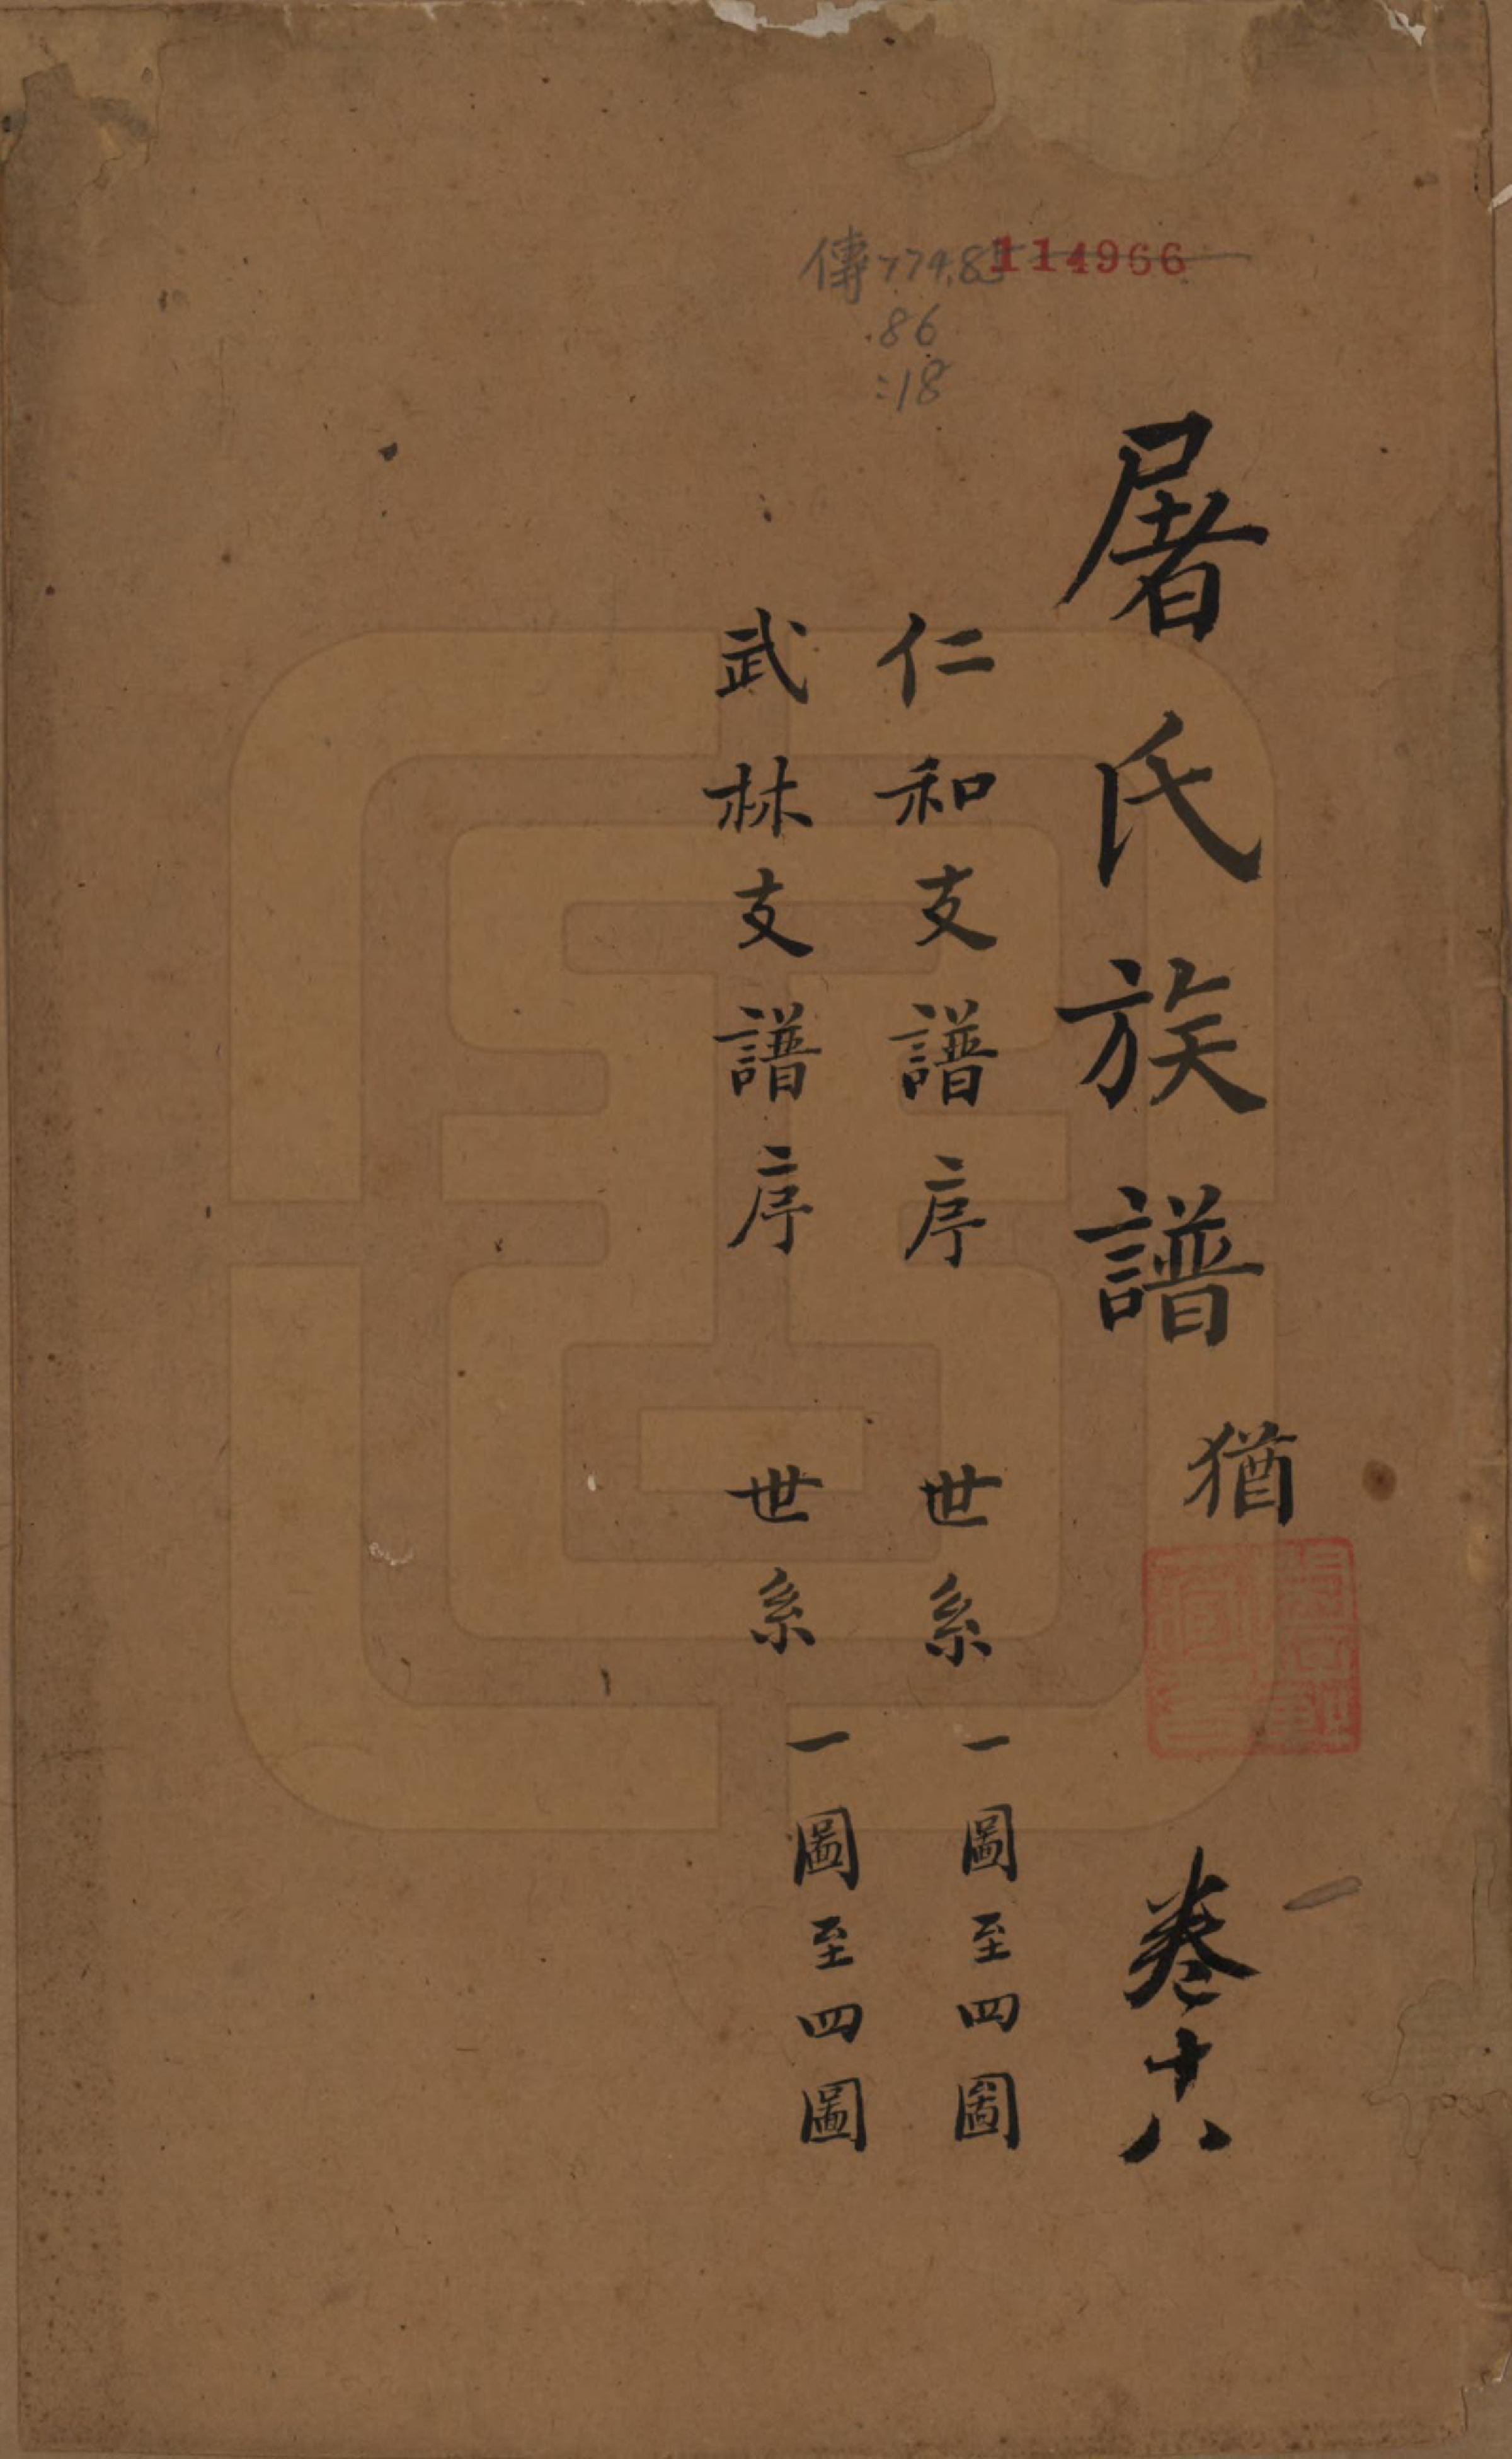 傳 779.85
.86
:18
114966
屠氏族譜 猶 卷十八
仁和支譜序 世系 一圖至四圖
武林支譜序 世系 一圖至四圖